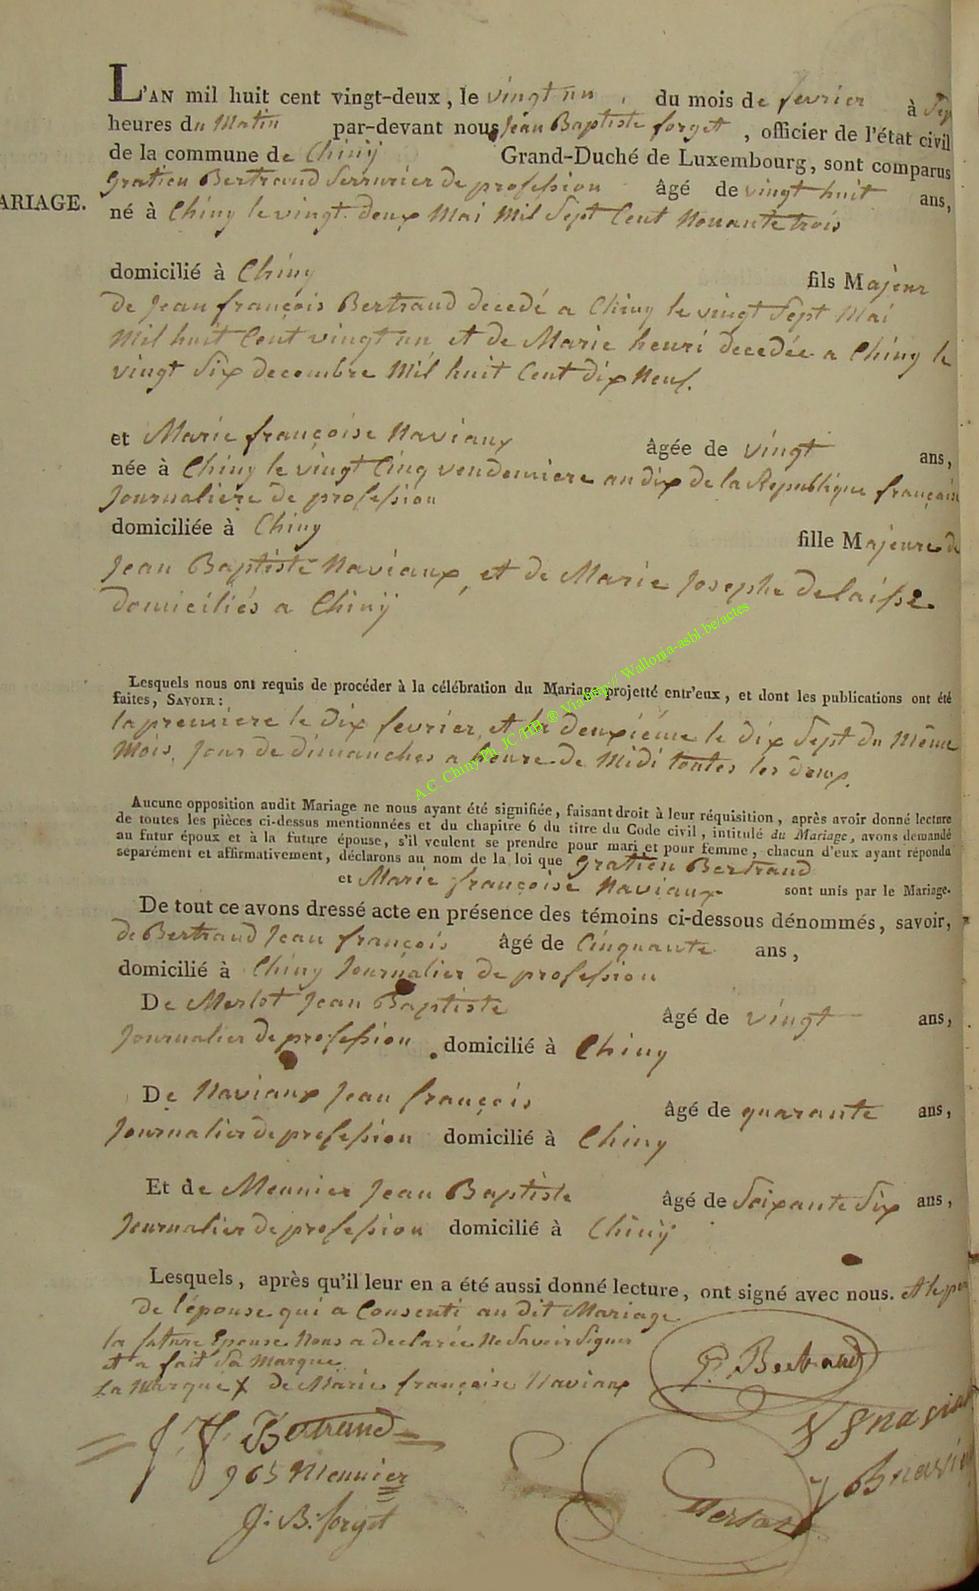 L'AN mil huit cent vingt-deux, le vingt un, du mois de fevrier à Sep
heures du Matin par-devant nous Jean Baptiste forget, officier de l'état civil
de la commune de Chinÿ Grand-Duché de Luxembourg, sont comparus
Gratien Bertrand Serrurier de profession âgé de vingt huit ans,
ARIAGE.
né à Chiny le vingt deux Mai Mil Sept Cent Nonante trois
domicilié à Chiny fils Majeur
de Jean françois Bertrand decedé a Chiny le vingt Sept Mai
Mil huit Cent vingt un et de Marie henri decedée a Chiny le
vingt Six decembre Mil huit Cent dix Neuf.
et Marie françoise Naviaux âgée de vingt ans,
née à Chiny le vingt Cinq vendemiere an dix de la Republique français
Journaliere de profession
domiciliée à Chiny fille Majeure de
Jean Baptiste Naviaux, et de Marie Josephe Delaisse.
domiciliés a Chinÿ
Lesquels nous ont requis de procéder à la célébration du Mariage projetté entr'eux, et dont les publications ont été
faites, SAVOIR:
la premiere le dix fevrier, et la deuxiéme le dix Sept du Même
Mois, Jour de dimanches a heure de Midi toutes les deux.
A.C. Chiny Ph JC /HB ® Via http// Wallonia-asbl.be/actes
Aucune opposition audit Mariage ne nous ayant été signifiée, faisant droit à leur réquisition, après avoir donné lecture
de toutes les pièces ci-dessus mentionnées et du chapitre 6 du titre du Code civil, intitulé du Mariage, avons demandé
au futur époux et à la future épouse, s'il veulent se prendre pour mari et pour femme, chacun d'eux ayant répondu
séparément et affirmativement, déclarons au nom de la loi que Gratien Bertrand
et Marie françoise Naviaux sont unis par le Mariage.
De tout ce avons dressé acte en présence des témoins ci-dessous dénommés, savoir,
de Bertrand Jean françois âgé de Cinquante ans,
domicilié à Chiny Journalier de profession
De Merlot Jean Baptiste âgé de vingt ans,
Journalier de profession domicilié à Chiny
De Naviaux Jean françois âgé de quarante ans,
Journalier de profession domicilié à Chiny
Et de Meunier Jean Baptiste âgé de Soixante Six ans,
Journalier de profession domicilié à Chinÿ
Lesquels, après qu'il leur en a été aussi donné lecture, ont signé avec nous. et le per
de l'épouse qui a Consenti au dit Mariage
la future Epouse Nous a declarée Ne Savoir Signer
et a fait Sa Marque
La Marque X de Marie françoise Naviaux
G Bertrand
J F Bertrand
Meunier
J: B: forget